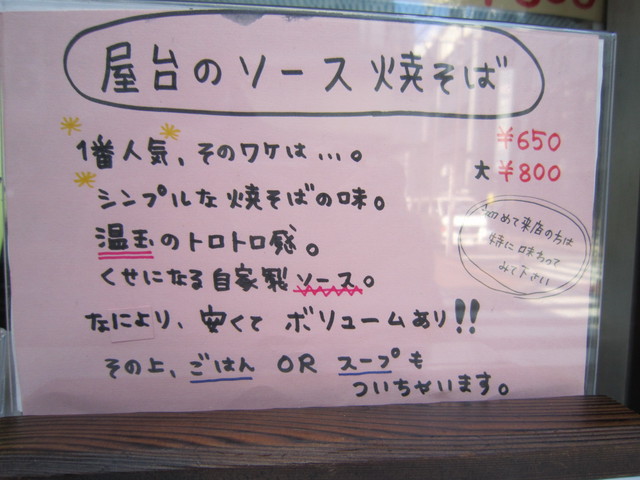 屋台のソース焼そば
1番人気、そのワケは…。
¥650
大 ¥800
シンプルな焼そばの味。
温玉のトロトロ感。
くせになる自家製ソース。
初めて来店の方は
特に味わって
みて下さい
なにより、安くて ボリュームあり!!
その上、ごはん OR スープも
ついちゃいます。